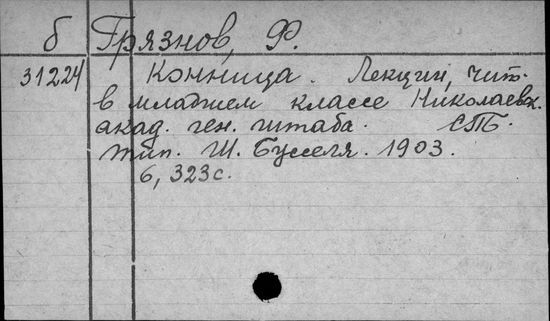 б Грязнов, Ф.
31224 Конница. Лекции, чит.
в младшем классе Николаевск.
акад. ген. штаба. СПБ.
тип. Ш. Бусселя. 1903.
6, 323с.